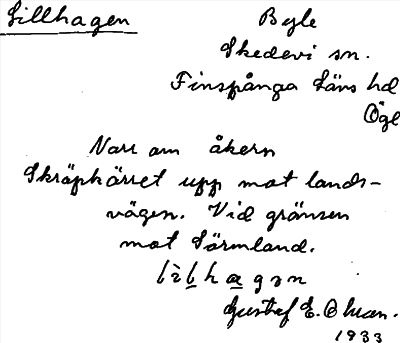 Lillhagen
Byle
Skedevi sn.
Finspånga läns hd
Ögl
Norr om åkern
Skräpkärret upp mot lands-
vägen. Vid gränsen
mot Sörmland.
Gustaf E. Ohman.
1933